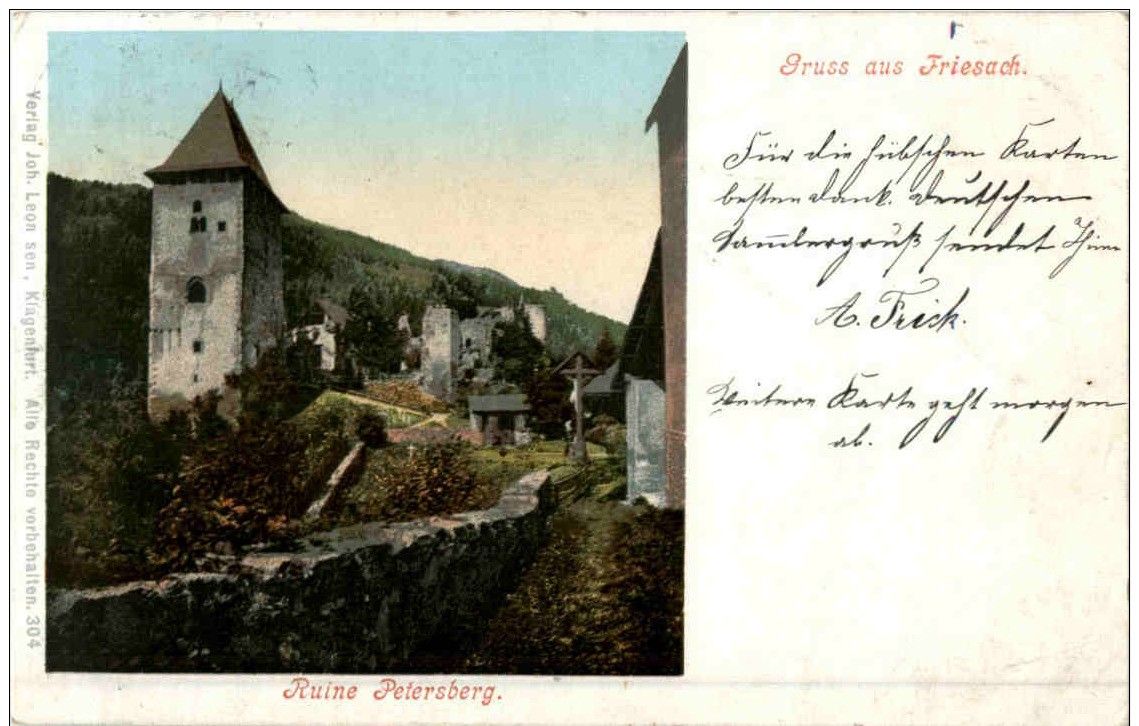 Gruss aus Friesach.
Für die hübschen Karten
besten Dank. Deutschen
Sammlergruß sendet Ihnen
A. Frick.
Weitere Karte geht morgen
ab.
Ruine Petersberg.
Verlag Joh. Leon sen, Klagenfurt. Alle Rechte vorbehalten. 304